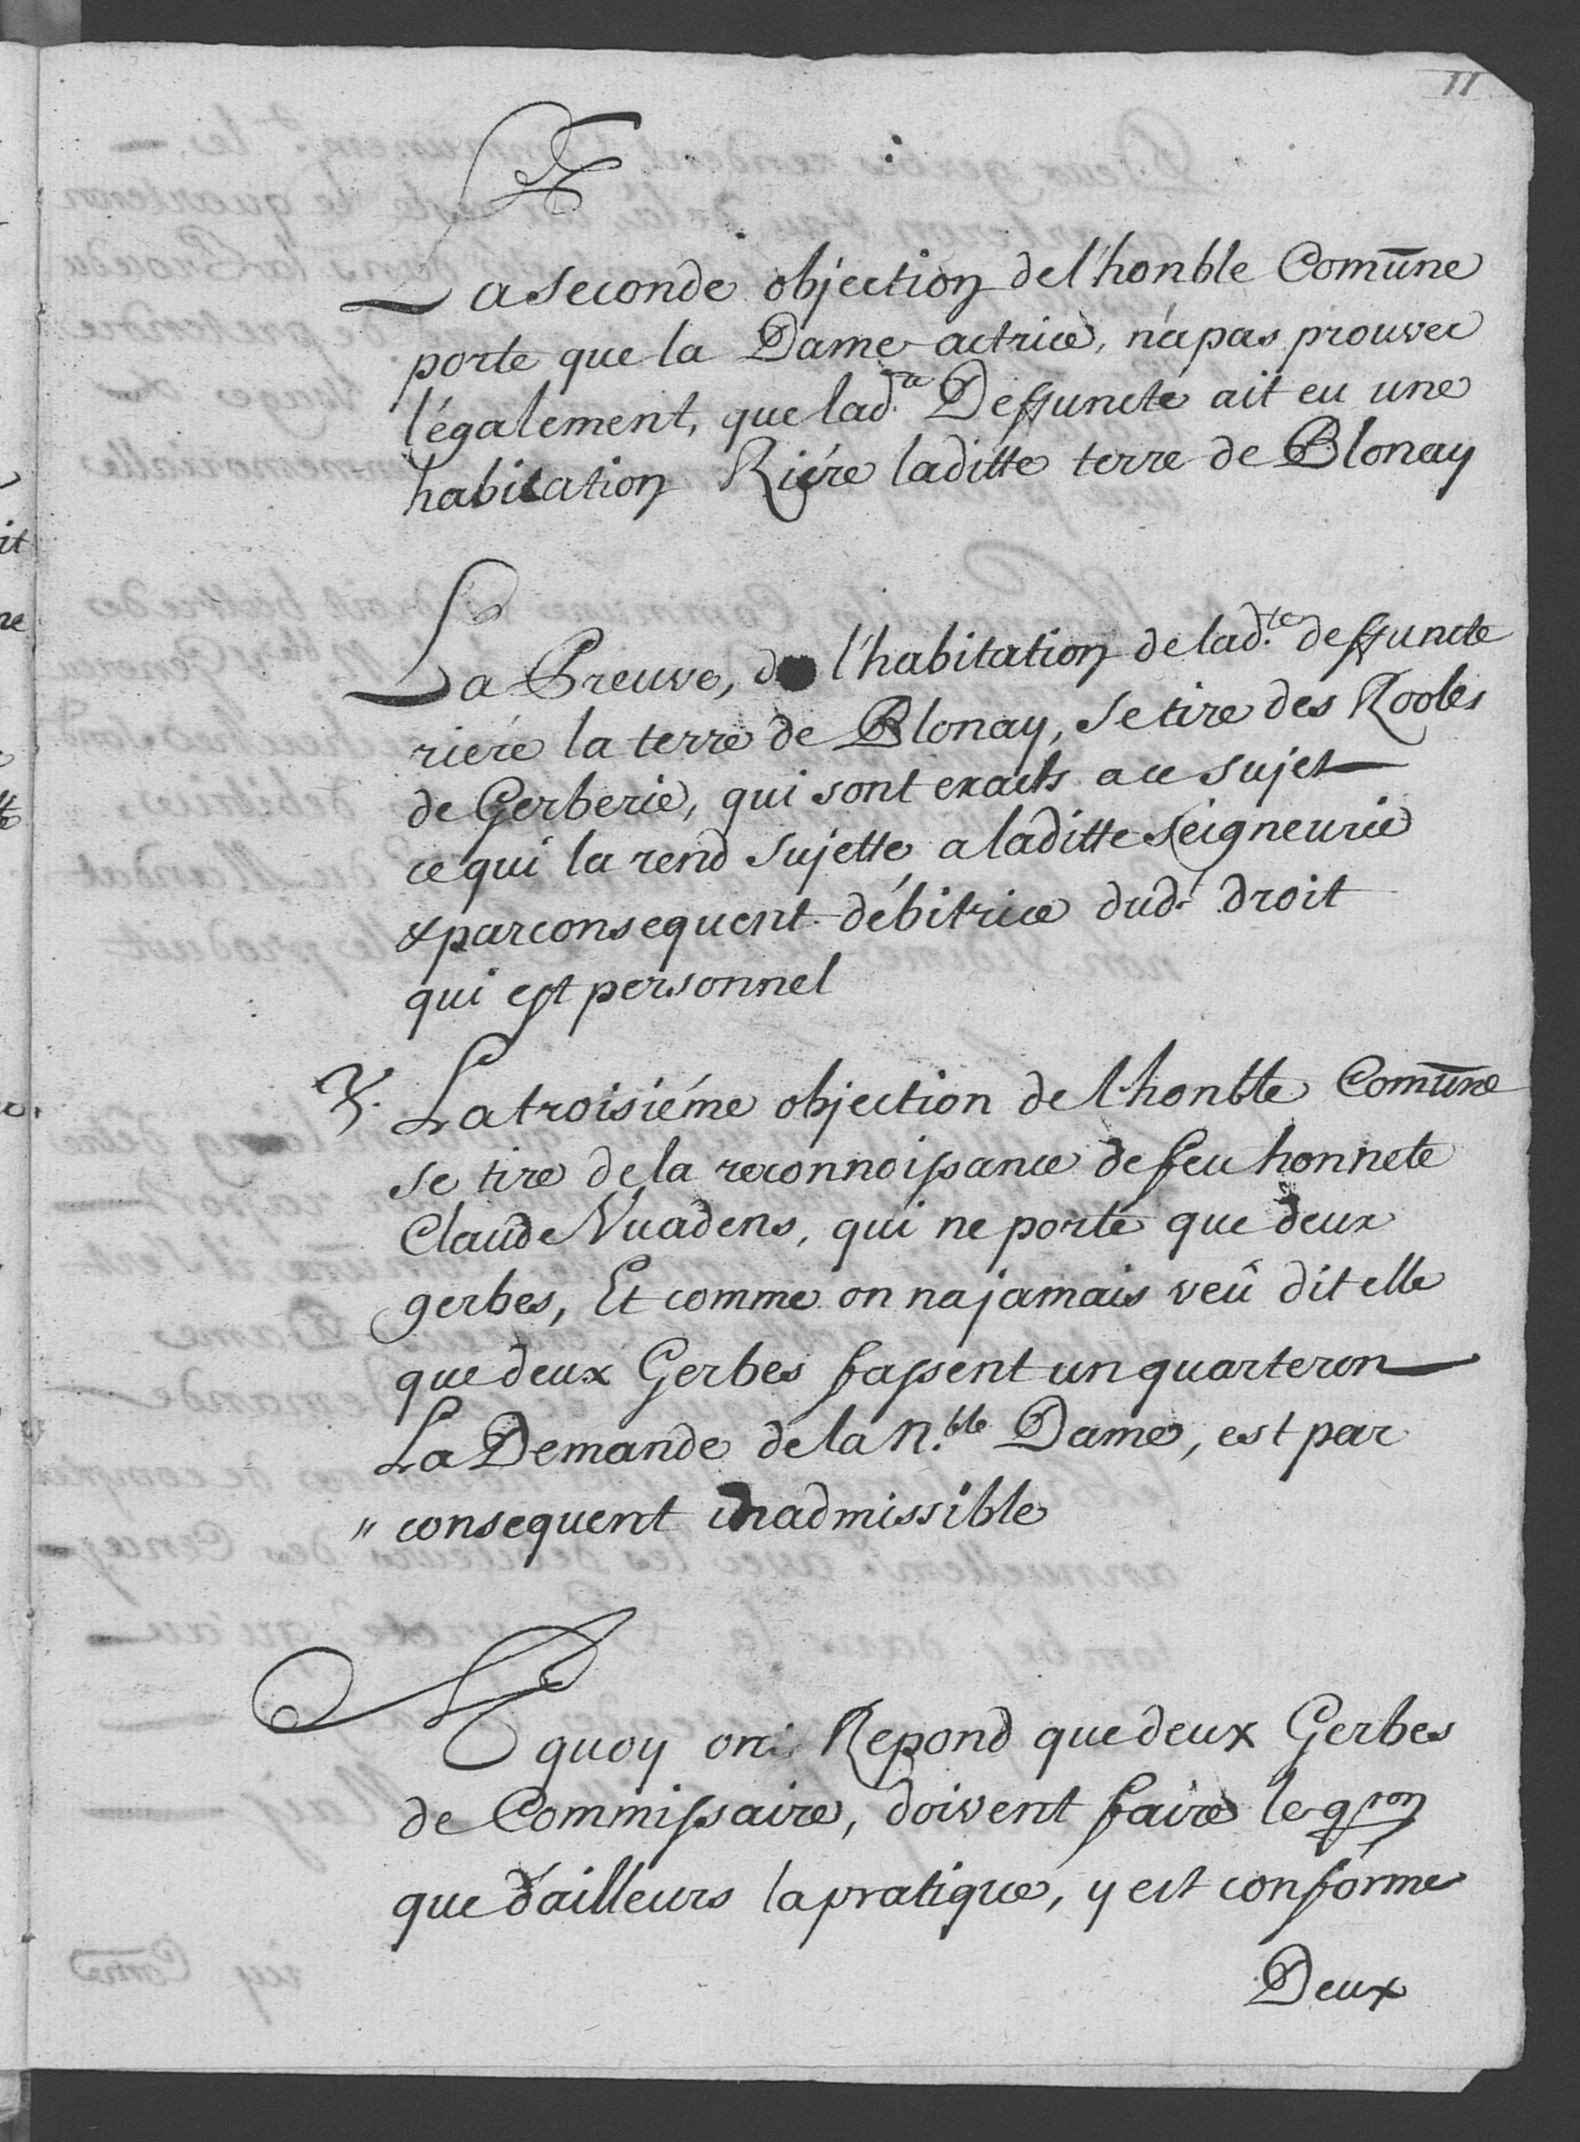 11
La seconde objection de l'honble Comūne
porte que la Dame actrice, n'a pas prouver
légalement, que lad.te Deffuncte ait eu une
habitation Riére laditte terre de Blonay
La Preuve, de l'habitation de lad.te deffuncte
riére la terre de Blonay, se tire des Rooles
de Gerberie, qui sont exacts a ce sujet
ce qui la rend sujette a laditte seigneurie
& par consequent débitrice dud.t droit
qui est personnel
3. La troisiéme objection de l'honble Comūne
se tire de la reconnoissance de feu honnete
Claude Vuadens, qui ne porte que deux
gerbes, Et comme on na jamais veû dit elle
que deux Gerbes fassent un quarteron
La Demande de la N.ble Dame, est par
" consequent inadmissible
A quoy on Repond que deux Gerbes
de Commissaire, doivent faire le qron
que d'ailleurs la pratique, y est conforme
Deux